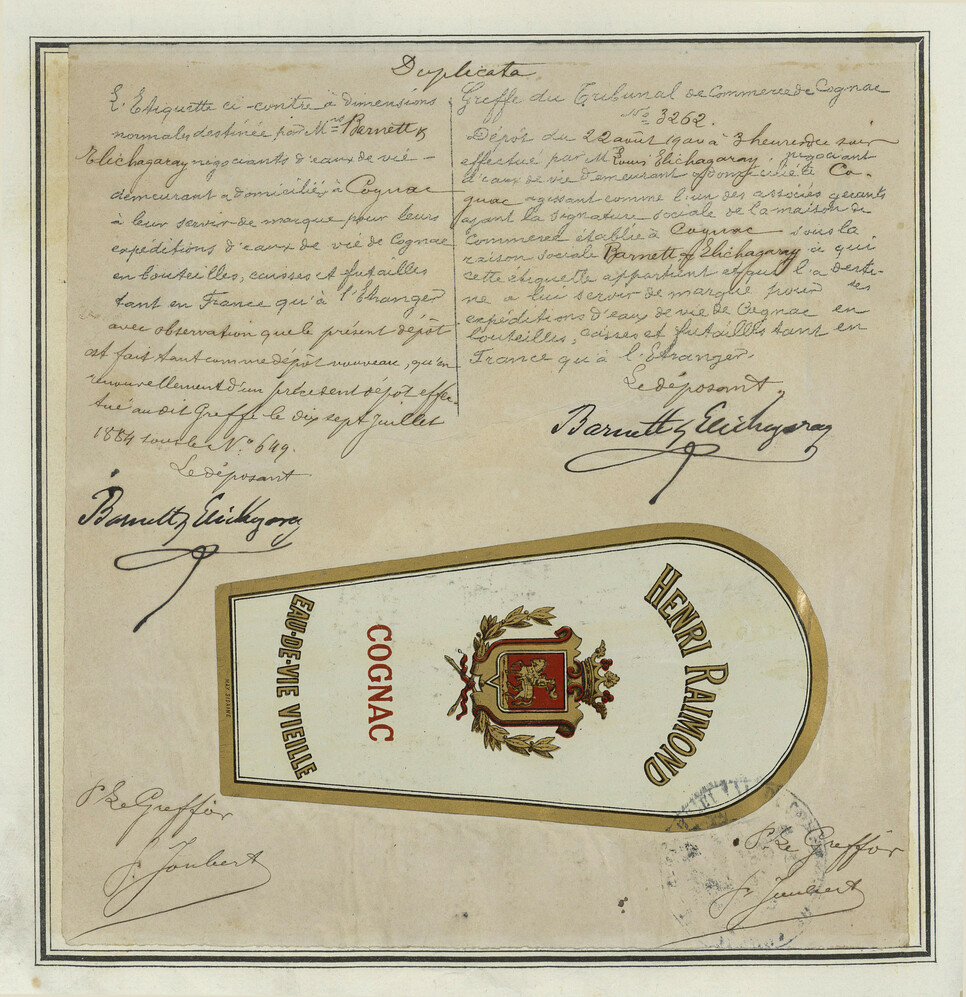 Duplicata
L'Etiquette ci-contre à dimensions
normales destinée par Mrs Barnett &
Elichagaray negociants d'eaux de vie
demeurant & domiciliés à Cognac
à leur servir de marque pour leurs
expéditions d'eaux de vie de Cognac
en bouteilles, caisses et futailles
tant en France qu'à l'Etranger
avec observation que le présent dépôt
est fait tant comme dépôt nouveau, qu'en
renouvellement d'un précédent dépôt effec-
tué au dit Greffe le dix sept Juillet
1884 sous le No 649.
Le déposant
Barnett & Elichagaray
Greffe du Tribunal de Commerce de Cognac
No 3262.
Dépôt du 22 août 1900 à 3 heures du soir
effectué par M Louis Elichagaray, negociant
d'eaux de vie demeurant & domicilié à Co-
gnac agissant comme l'un des associés gérants
ayant la signature sociale de la maison de
Commerce établie à Cognac sous la
raison sociale Barnett & Elichagaray à qui
cette étiquette appartient et qui l'a desti-
né à lui servir de marque pour ses
expéditions d'eaux de vie de Cognac en
bouteilles, caisses et futailles tant en
France qu'à l'Etranger.
Le déposant,
Barnett & Elichagaray
HENRI RAIMOND
COGNAC
EAU-DE-VIE VIEILLE
P. Le Greffier
J. Joubert
P. Le Greffier
J. Joubert